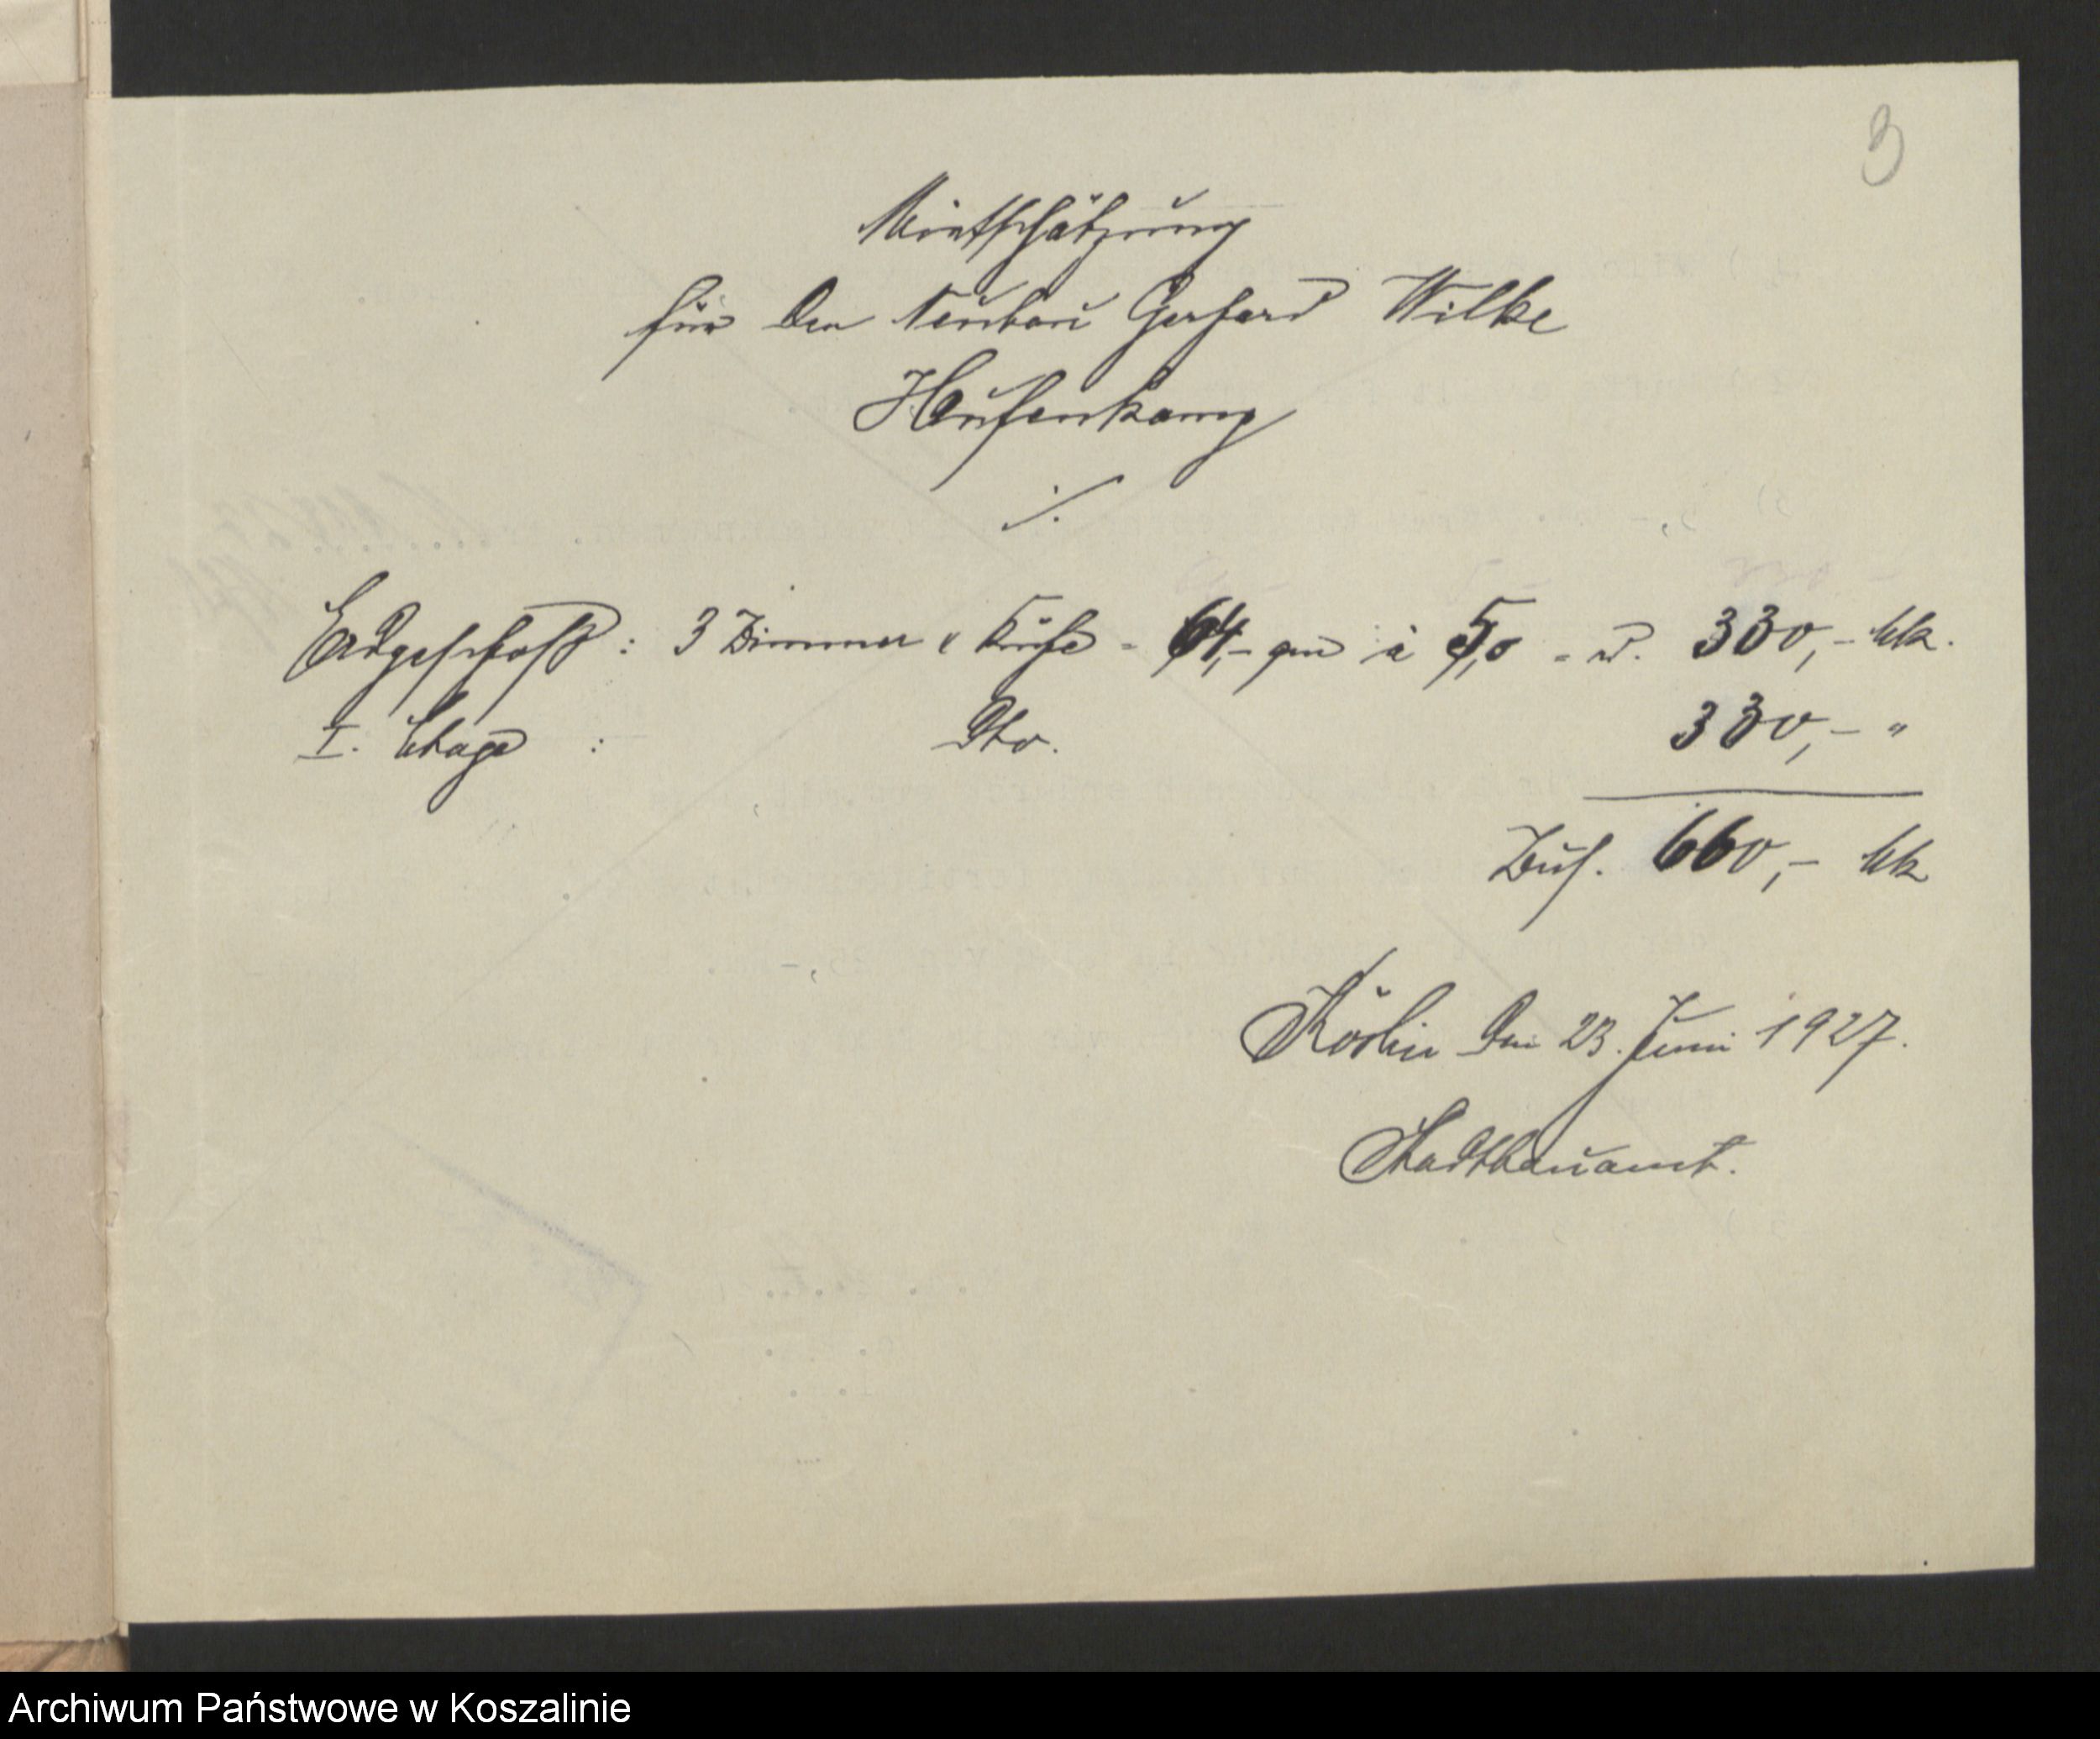 3
Mietschätzung
für den Neubau Gerhard Wilke
Hufenkamp
./.
Erdgeschoß: 3 Zimmer u Küche = 64,- qm à 5,0 = rd. 330,- Mk.
I. Etage : Dto. 330,- "
Zus. 660,- Mk
Köslin den 23. Juni 1927.
Stadtbauamt.
Archiwum Państwowe w Koszalinie